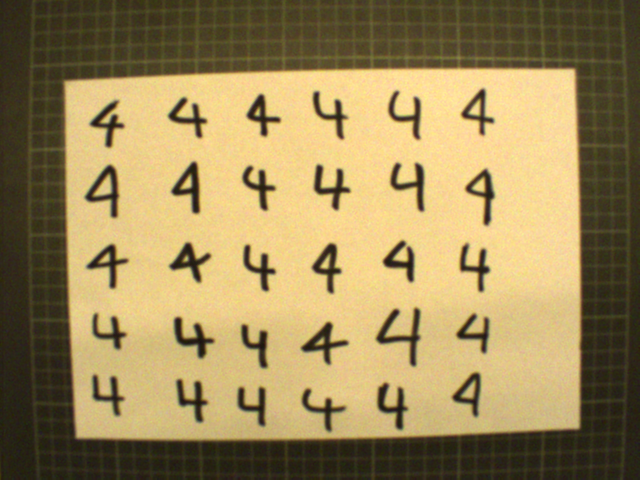 4 4 4 4 4 4
4 4 4 4 4 4
4 4 4 4 4 4
4 4 4 4 4 4
4 4 4 4 4 4